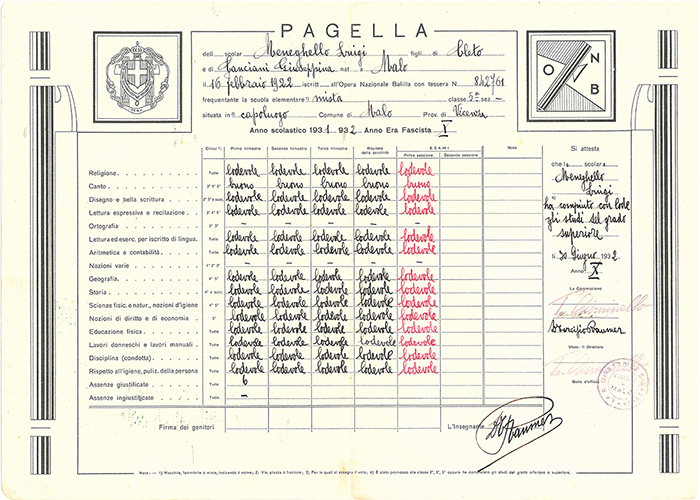 PAGELLA
dell scolar Meneghello Luigi figli di Cleto
e di Canciani Giuseppina nat a Malo
il 16 febbraio 1922 iscritt all'Opera Nazionale Balilla con tessera N. 842761
frequentante la scuola elementare mista classe 5ª sez. –
situata in capoluogo Comune di Malo Prov. di Vicenza
Anno scolastico 1931 932 Anno Era Fascista X
O N B
Classi Primo trimestre Secondo trimestre Terzo trimestre Risultato dello scrutinio ESAMI Prima sessione Seconda sessione Note
Religione Tutte lodevole lodevole lodevole lodevole lodevole
Canto buono buono buono buono buono
Disegno e bella scrittura lodevole lodevole lodevole lodevole lodevole
Lettura espressiva e recitazione. lodevole lodevole lodevole lodevole lodevole
Ortografia – – – –
Lettura ed eserc. per iscritto di lingua. Tutte lodevole lodevole lodevole lodevole lodevole
Aritmetica e contabilità. lodevole lodevole lodevole lodevole lodevole
Nozioni varie – – – –
Geografia. lodevole lodevole lodevole lodevole lodevole
Storia lodevole lodevole lodevole lodevole lodevole
Scienze fisic. e natur., nozioni d'igiene lodevole lodevole lodevole lodevole lodevole
Nozioni di diritto e di economia lodevole lodevole lodevole lodevole lodevole
Educazione fisica. Tutte lodevole lodevole lodevole lodevole lodevole
Lavori donneschi e lavori manuali Tutte lodevole lodevole lodevole lodevole lodevole
Disciplina (condotta). Tutte lodevole lodevole lodevole lodevole lodevole
Rispetto all'igiene, puliz. della persona Tutte lodevole lodevole lodevole lodevole lodevole
Assenze giustificate Tutte 6
Assenze ingiustificate Tutte –
Firma dei genitori
L'Insegnante
Si attesta
che l scolar
Meneghello
Luigi
ha compiuto con lode
gli studi del grado
superiore
li 30 Giugno 1932
Anno X
La Commissione
Visto: Il Direttore
Bollo d'ufficio